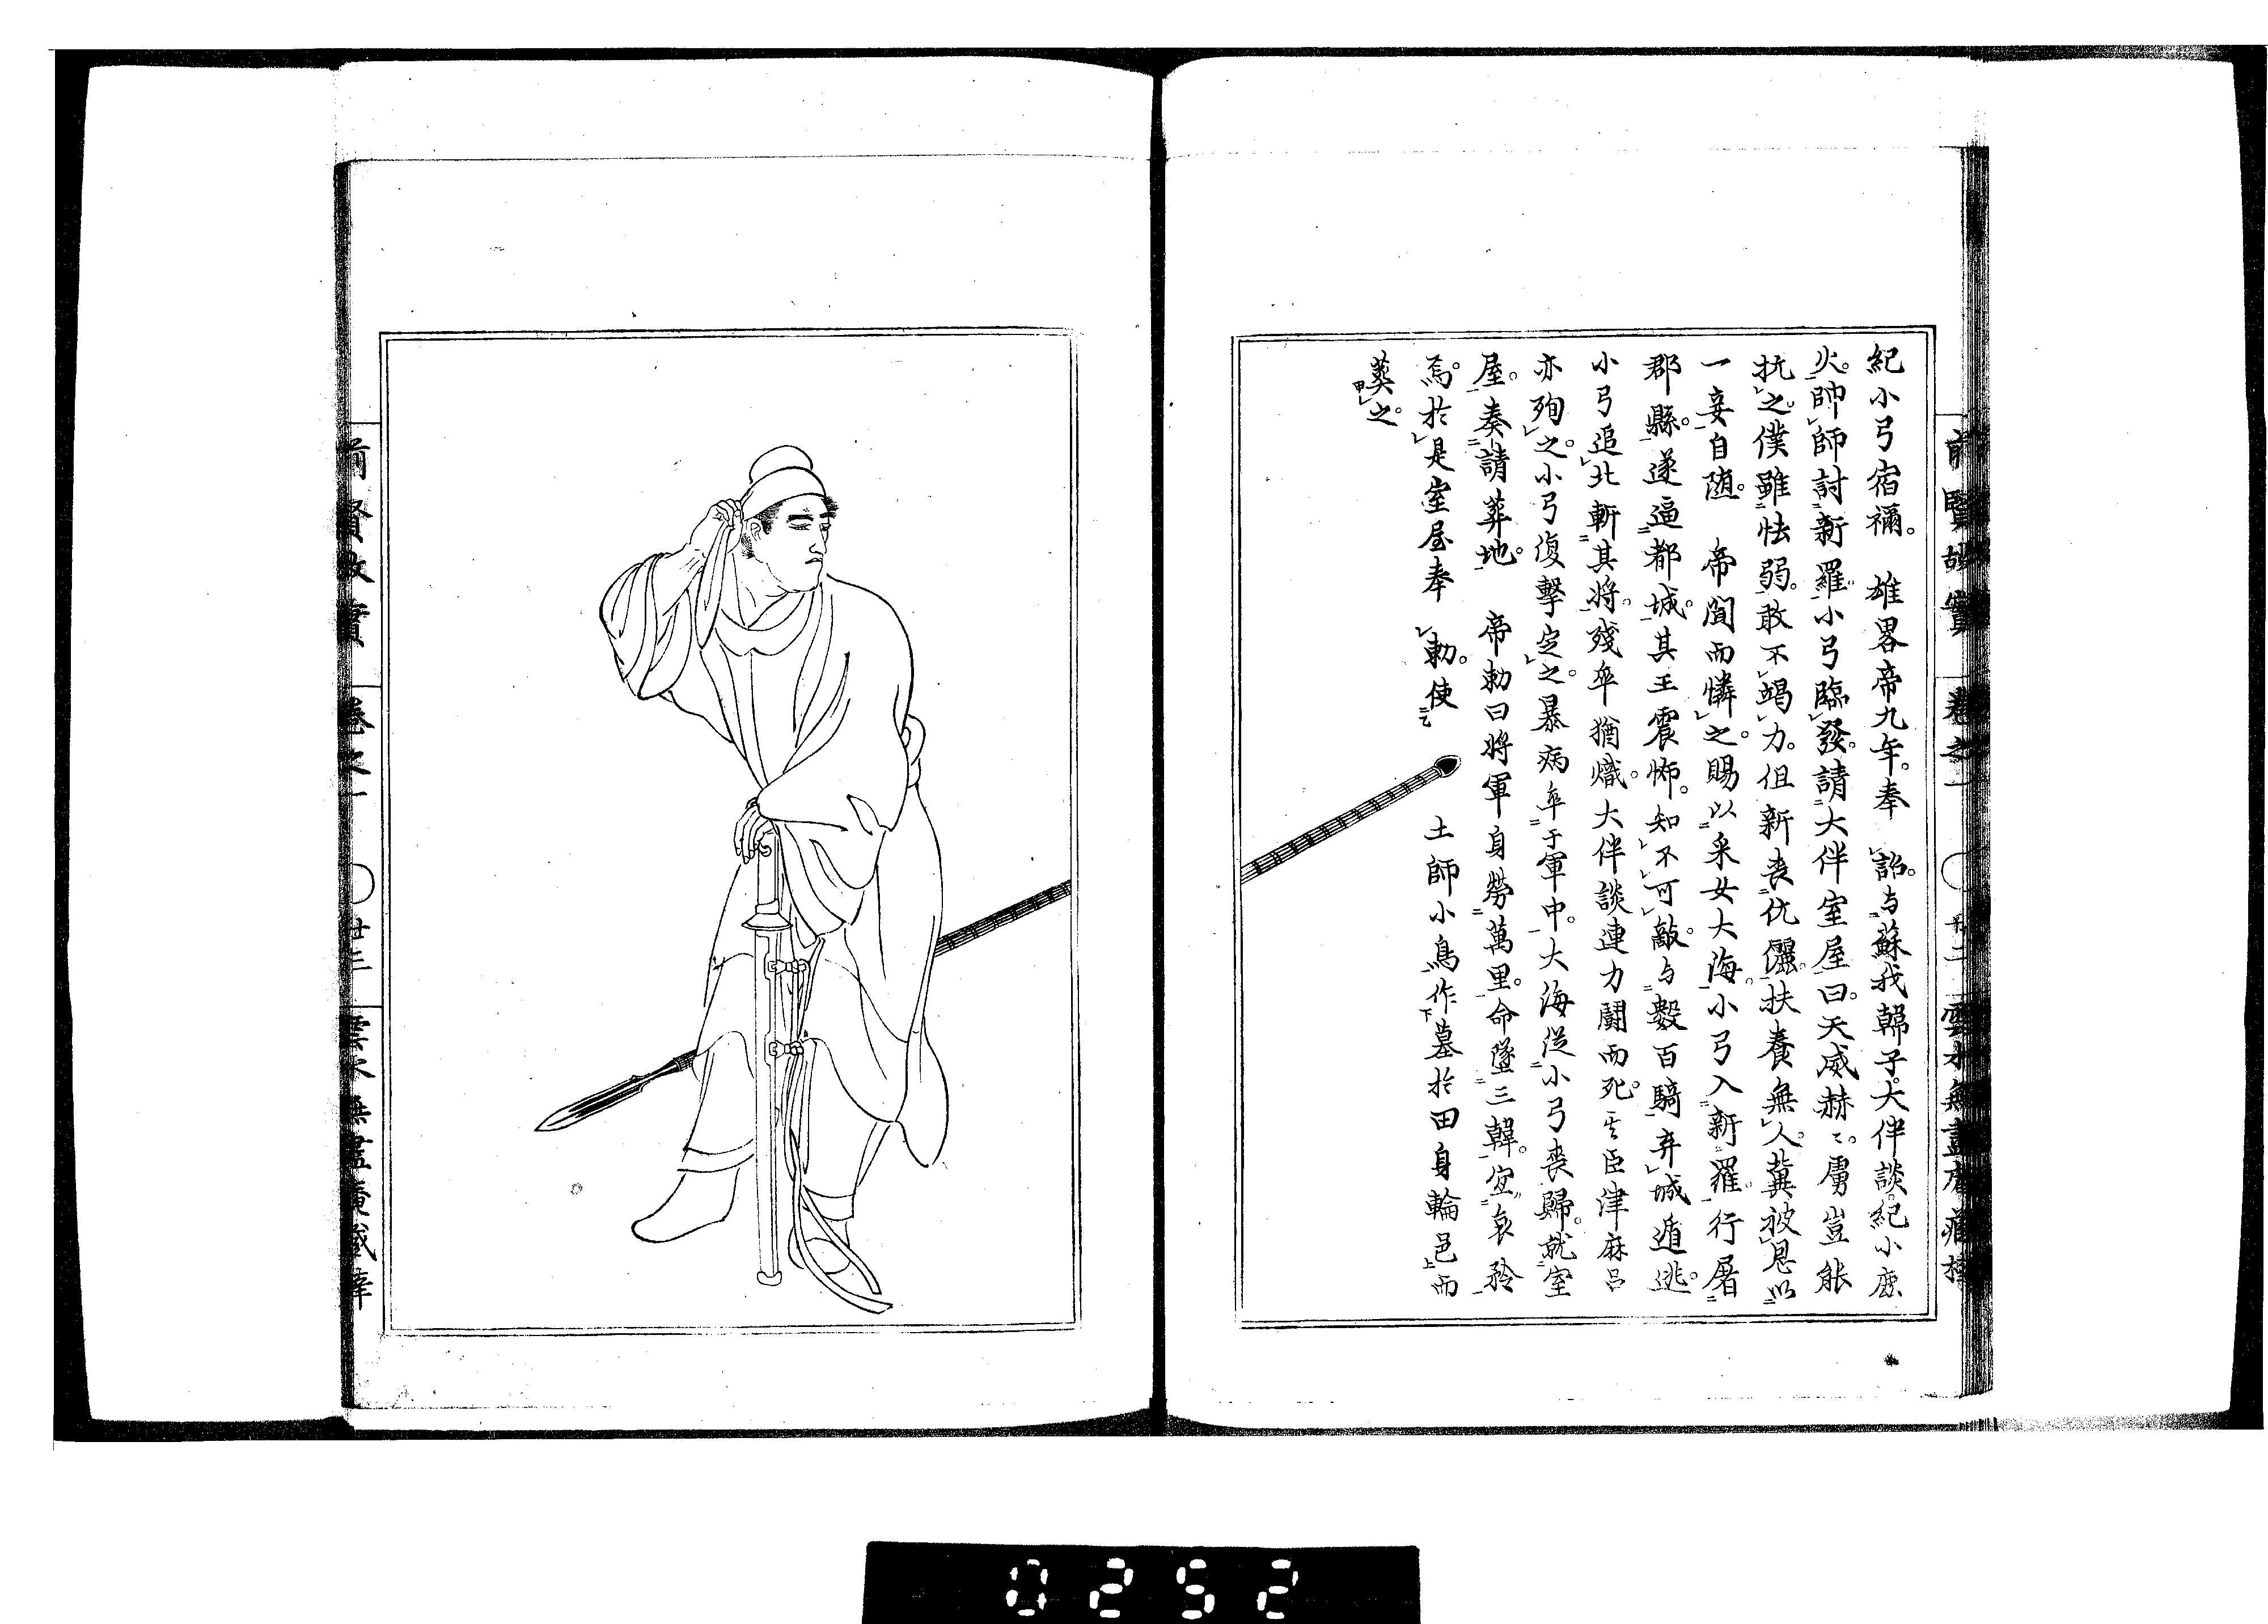 前賢故實　卷之一　〇　廿二　雲水無盡庵藏梓
紀小弓宿禰。　雄畧帝九年。奉　詔。与蘇我韓子。大伴談。紀小鹿
火。帥師討新羅。小弓臨發。請大伴室屋曰。天威赫〻。虜豈能
抗之。僕雖怯弱。敢不竭力。但新喪伉儷。扶養無人。冀被恩以
一妾自随。　帝聞而憐之。賜以采女大海。小弓入新羅。行屠
郡縣。遂逼都城。其王震怖。知不可敵。与數百騎弃城遁逃。
小弓追北斬其将。殘卒猶熾。大伴談連力闘而死。其臣津麻呂
亦殉之。小弓復擊定之。暴病卒于軍中。大海從小弓喪歸。就室
屋。奏請葬地。　帝勅曰将軍身勞萬里。命墜三韓。宜哀矜
焉。於是室屋奉　勅。使　土師小鳥作墓於田身輪邑而
葬之。
前賢故實　卷之一　〇　廿三　雲水無盡庵藏梓
0252